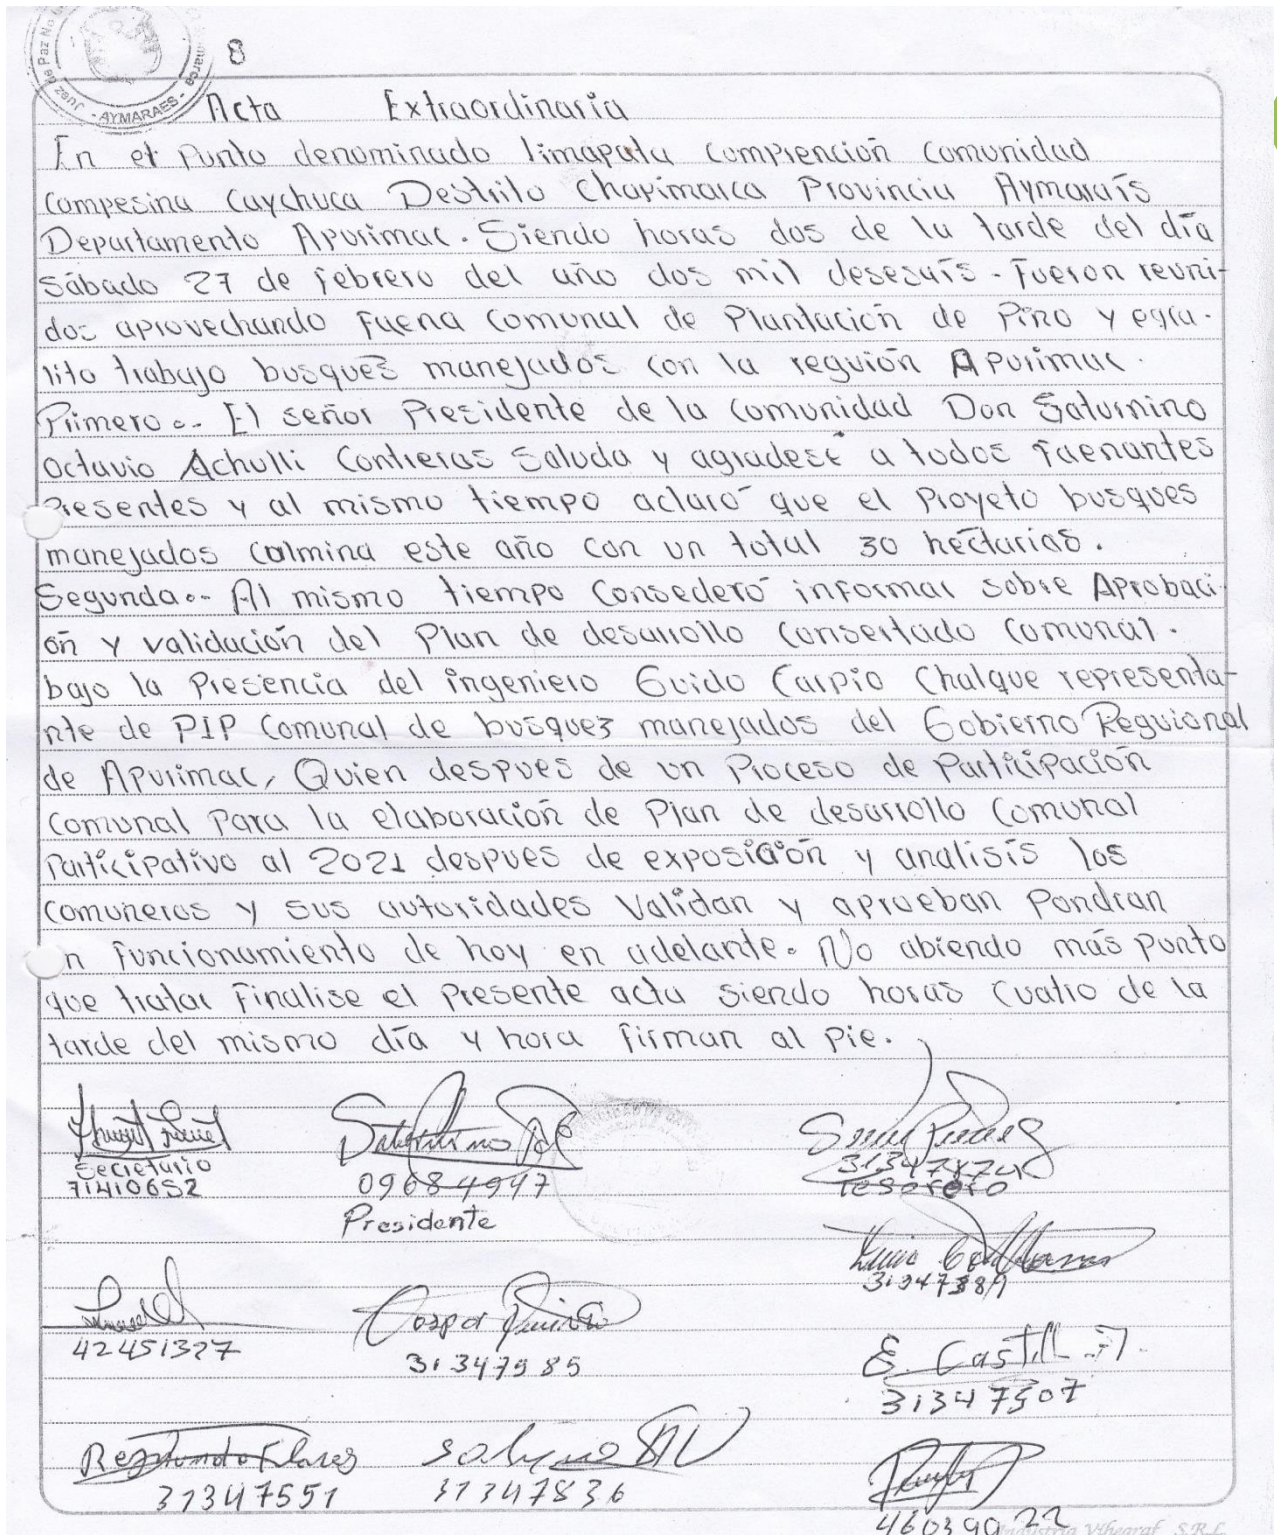 Juez de Paz No
AYMARAES
8
Acta Extraordinaria
En et Punto denominado limapata comprención comunidad
campesina Caychuca Destrito Chapimarca Provincia Aymaraís
Departamento Apurimac. Siendo horas dos de la tarde del día
Sábado 27 de febrero del año dos mil desesaís - Fueron reuni-
dos aprovechando Faena Comunal de Plantación de Pino y egra-
lito trabajo busques manejados con la reguión Apurimac.
Primero.- El señor Presidente de la Comunidad Don Saturnino
Octavio Achulli Contreras Saluda y agradesé a todos Faenantes
Presentes y al mismo tiempo aclaró que el Proyeto busques
manejados Colmina este año con un total 30 hectarias.
Segunda.- Al mismo tiempo Consederó informar sobre Aprobaci-
ón y validación del Plan de desarrollo Consertado Comunal.
bajo la Presencia del ingeniero Guido Carpio Chalque representa-
nte de PIP Comunal de busquez manejados del Gobierno Reguional
de Apurimac, Quien despues de un Proceso de Participación
Comunal Para la elaboración de Plan de desarrollo Comunal
Participativo al 2021 despues de exposición y analisis los
Comuneros y sus autoridades Validan y aprueban Pondran
n Funcionamiento de hoy en adelante. No abiendo más punto
que tratar Finalise el Presente acta siendo horas Cuatro de la
tarde del mismo día y hora Firman al Pie.
Secretario
71410652
09684947
Presidente
31347874
Tesorero
42451327
31347985
E. Castill
31347507
Flores
31347551
31347836
46039922
Industria Vihegraf S.R.L.